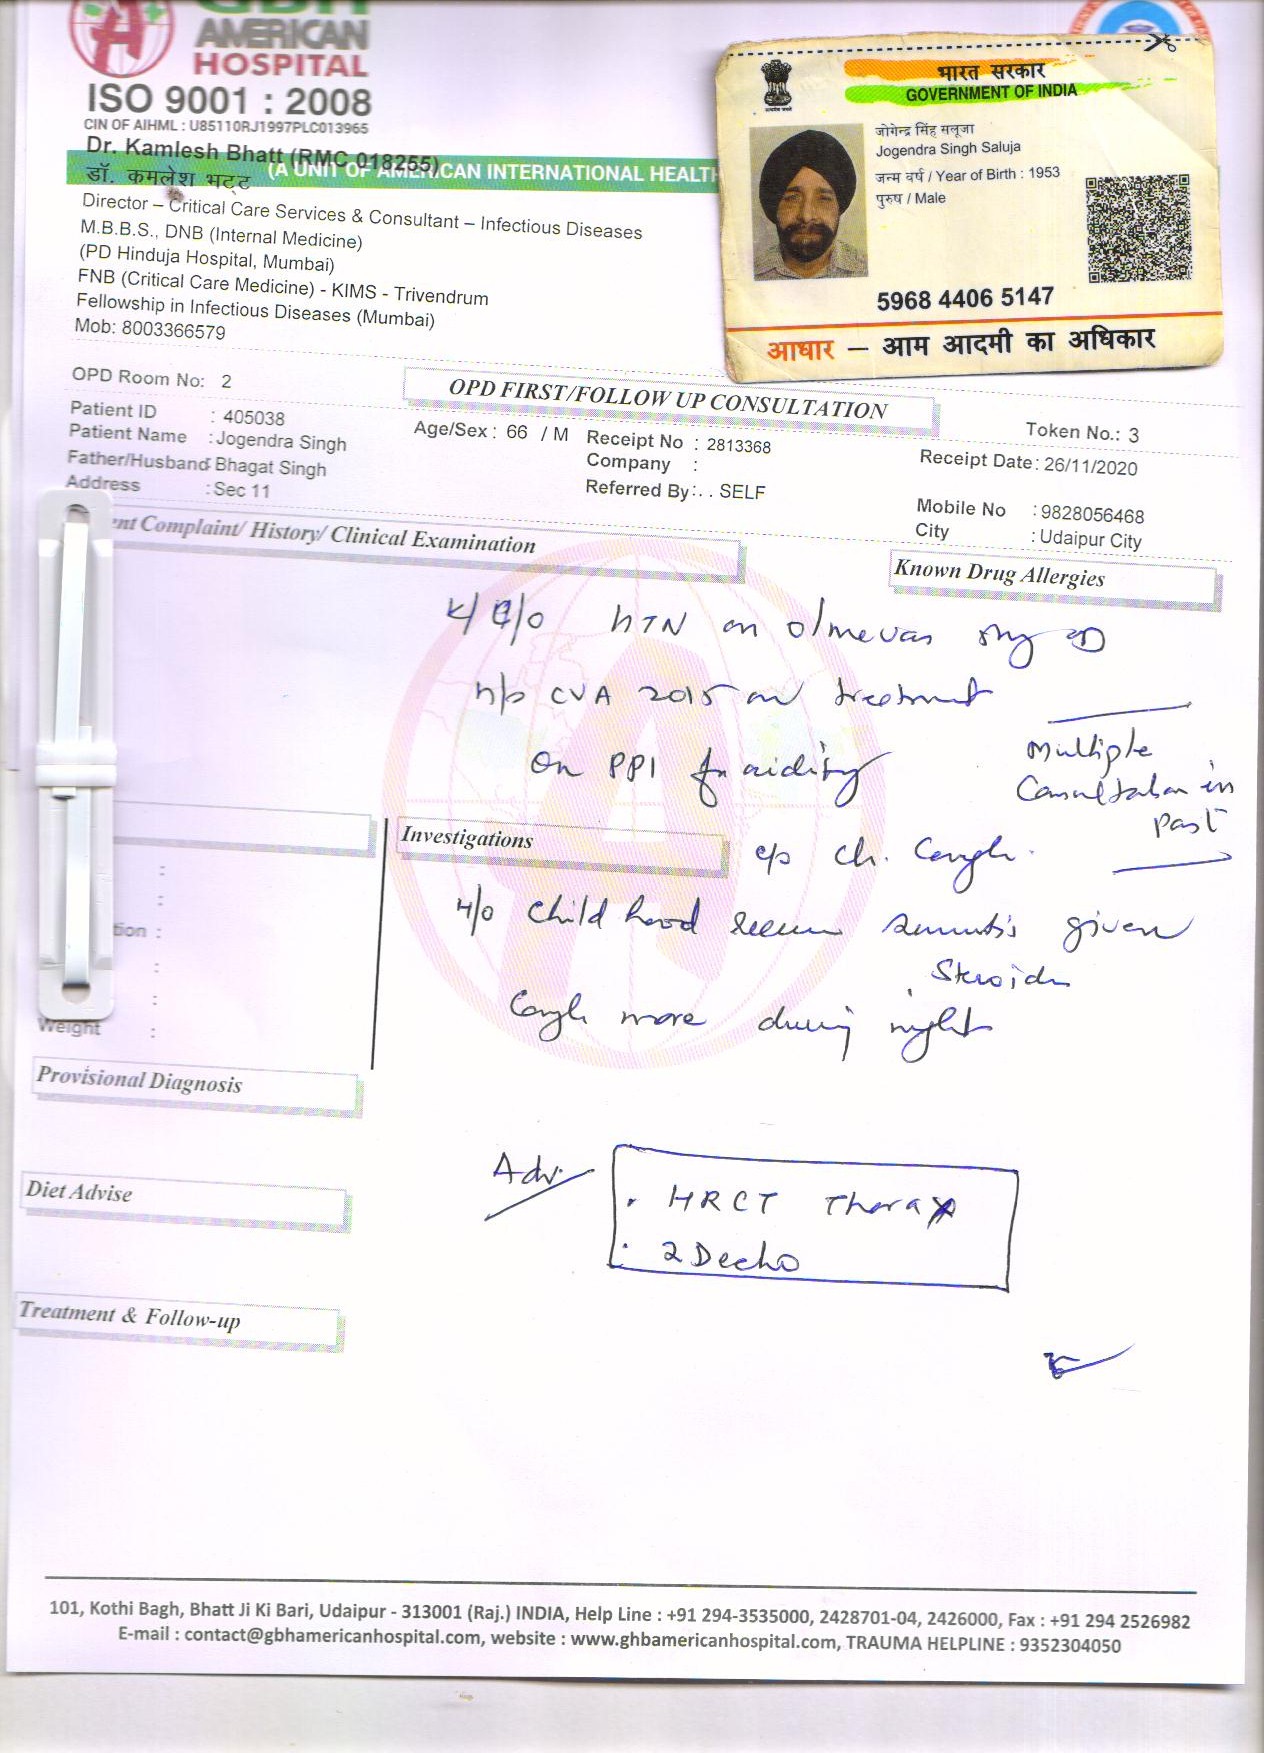 GBH
AMERICAN
HOSPITAL
ISO 9001 : 2008
CIN OF AIHML : U85110RJ1997PLC013965
Dr. Kamlesh Bhatt (RMC 018255)
(A UNIT OF AMERICAN INTERNATIONAL HEALTH
डॉ. कमलेश भट्ट
Director – Critical Care Services & Consultant – Infectious Diseases
M.B.B.S., DNB (Internal Medicine)
(PD Hinduja Hospital, Mumbai)
FNB (Critical Care Medicine) - KIMS - Trivendrum
Fellowship in Infectious Diseases (Mumbai)
Mob: 8003366579
भारत सरकार
GOVERNMENT OF INDIA
जोगेन्द्र सिंह सलूजा
Jogendra Singh Saluja
जन्म वर्ष / Year of Birth : 1953
पुरुष / Male
5968 4406 5147
आधार – आम आदमी का अधिकार
OPD Room No: 2
OPD FIRST/FOLLOW UP CONSULTATION
Token No.: 3
Patient ID : 405038
Age/Sex : 66 / M Receipt No : 2813368
Receipt Date: 26/11/2020
Patient Name : Jogendra Singh
Company :
Father/Husband: Bhagat Singh
Referred By: . . SELF
Mobile No : 9828056468
Address : Sec 11
City : Udaipur City
ent Complaint/ History/ Clinical Examination
Known Drug Allergies
K/C/o HTN on olmevas OD
h/o CVA 2015 on treatment
On PPI for acidity
Multiple
Consultation in
past
Investigations
c/o ch. Cough.
H/o Child hood given
Steroids
Cough more during night
tion :
Weight :
Provisional Diagnosis
Adv.
HRCT Thorax
2Decho
Diet Advise
Treatment & Follow-up
101, Kothi Bagh, Bhatt Ji Ki Bari, Udaipur - 313001 (Raj.) INDIA, Help Line : +91 294-3535000, 2428701-04, 2426000, Fax : +91 294 2526982
E-mail : contact@gbhamericanhospital.com, website : www.ghbamericanhospital.com, TRAUMA HELPLINE : 9352304050